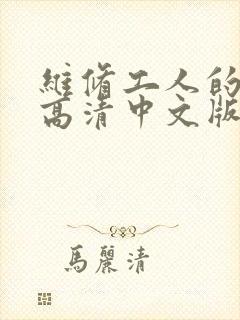 維脩工人的
高清中文版
馬麗清